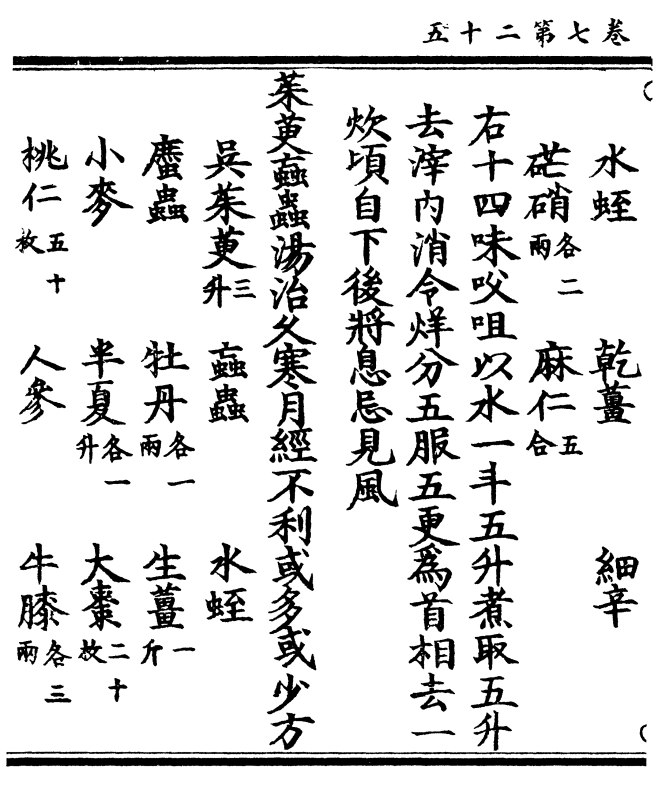 卷七第二十五
水蛭　乾薑　細辛
芒硝各二兩　麻仁五合
右十四味㕮咀以水一斗五升煮取五升
去滓內消令烊分五服五更爲首相去一
炊頃自下後將息忌見風
茱萸䗈蟲湯治久寒月經不利或多或少方
吳茱萸三升　䗈蟲　水蛭
䗪蟲　牡丹各一兩　生薑一斤
小麥　半夏各一升　大棗二十枚
桃仁五十枚　人參　牛膝各三兩